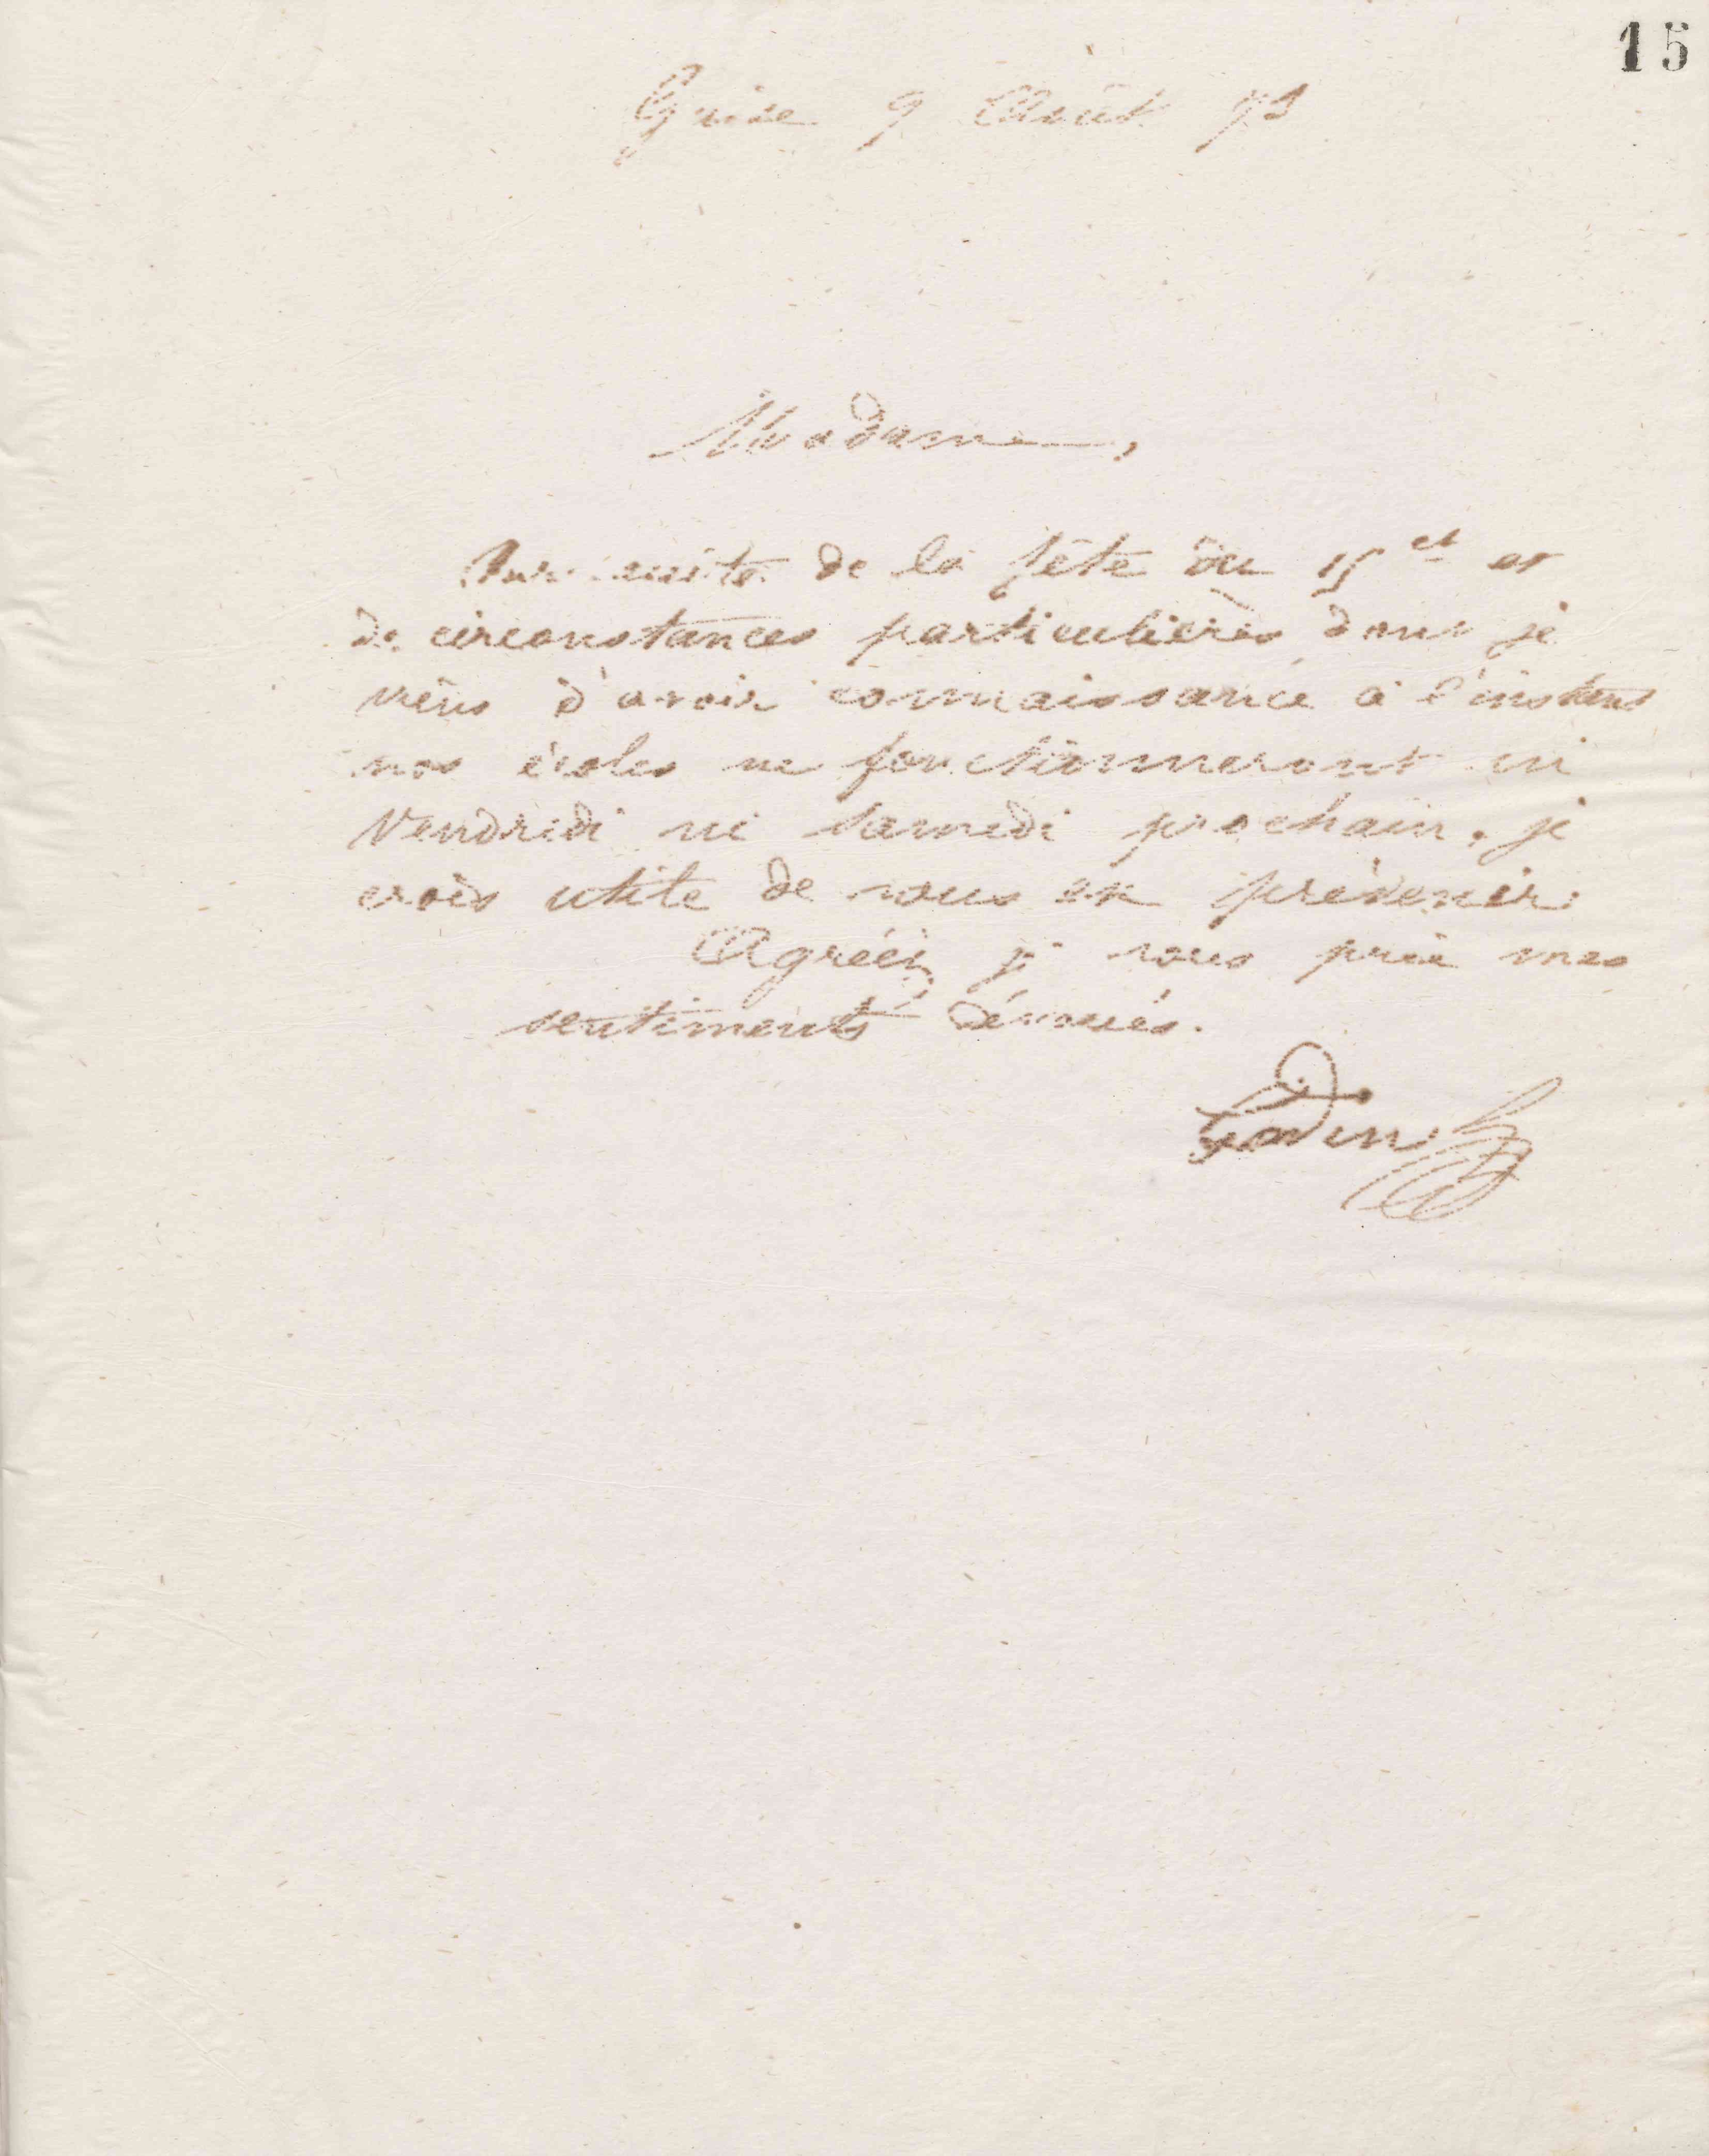 15
Guise 9 Août 73
Madame,
Par suite de la fête du 15 ct et
de circonstances particulières dont je
viens d'avoir connaissance à l'instant
nos écoles ne fonctionneront ni
Vendredi ni Samedi prochain. je
crois utile de vous en prévenir.
Agréez je vous prie mes
sentiments dévoués.
Godin